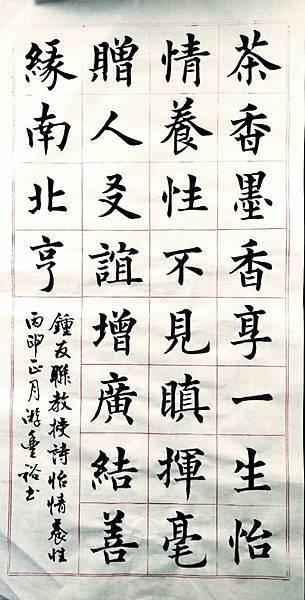 茶香墨香享一生怡
情養性不見瞋揮毫
贈人叉誼增廣結善
緣南北亨
鍾友聯教授詩怡情養性
丙申正月游壹裕书